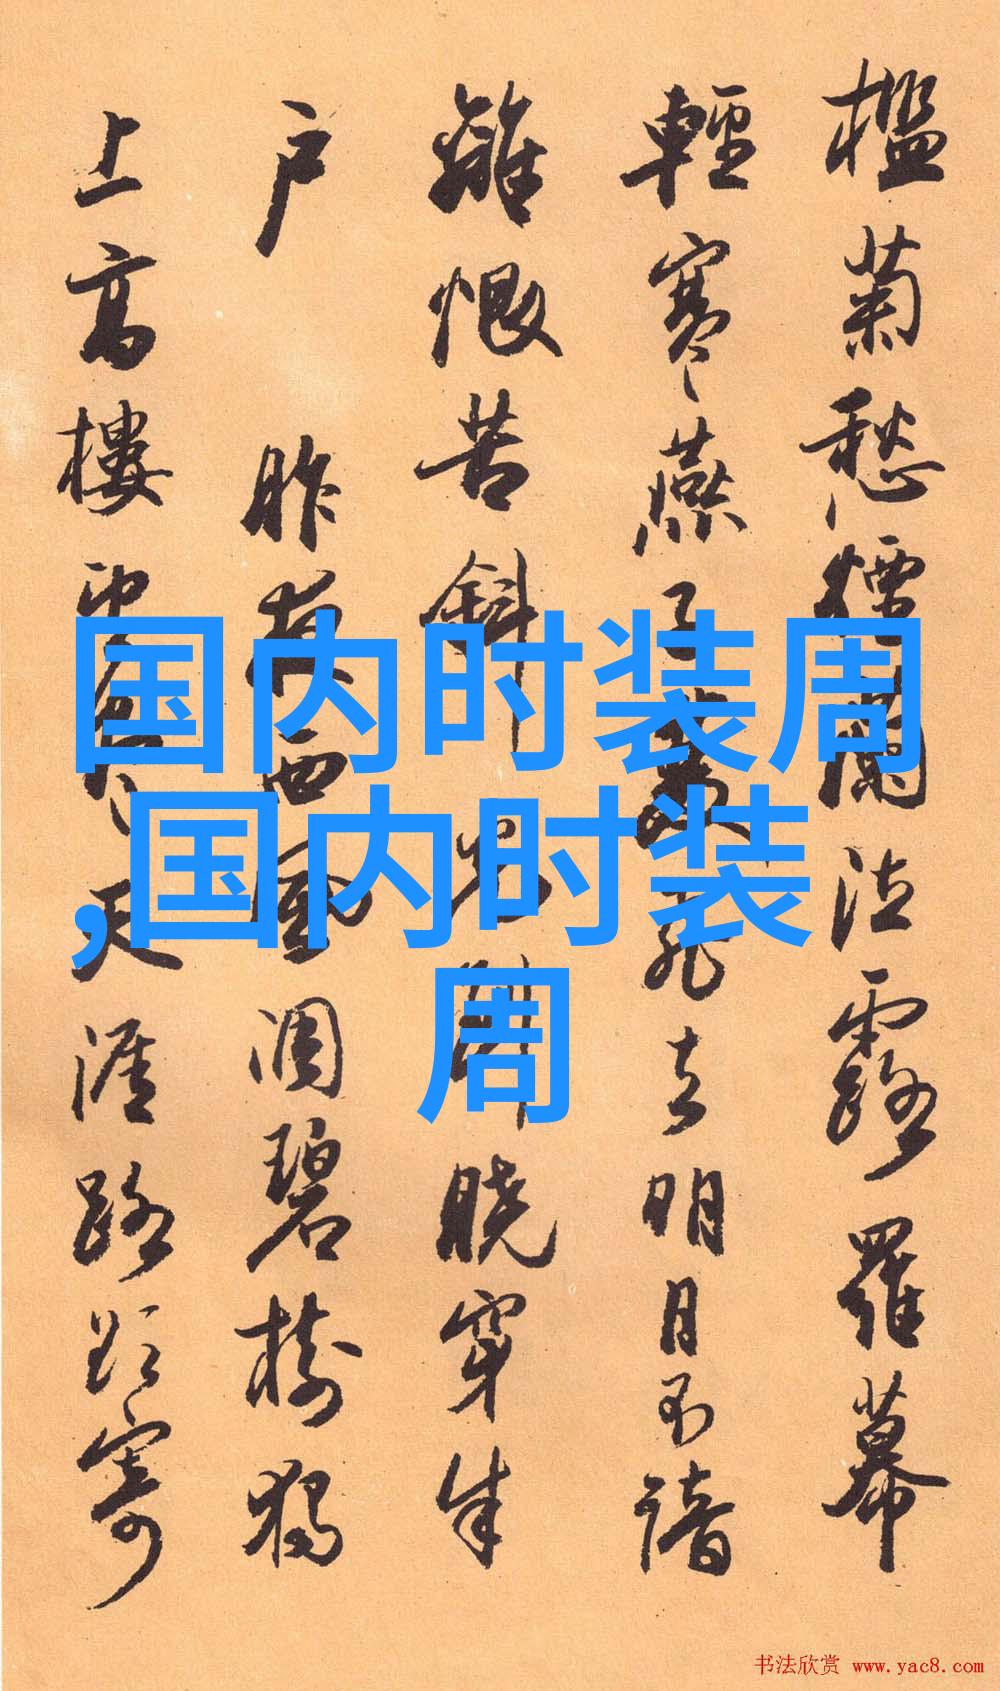 檻菊愁煙蘭泣露羅幕
輕寒燕子雙飛去明月不諳
離恨苦斜光到曉穿朱
户 昨夜西風凋碧樹獨
上高樓望盡天涯路欲寄
国内时装周
,国内时装
周
书法欣赏 www.yac8.com